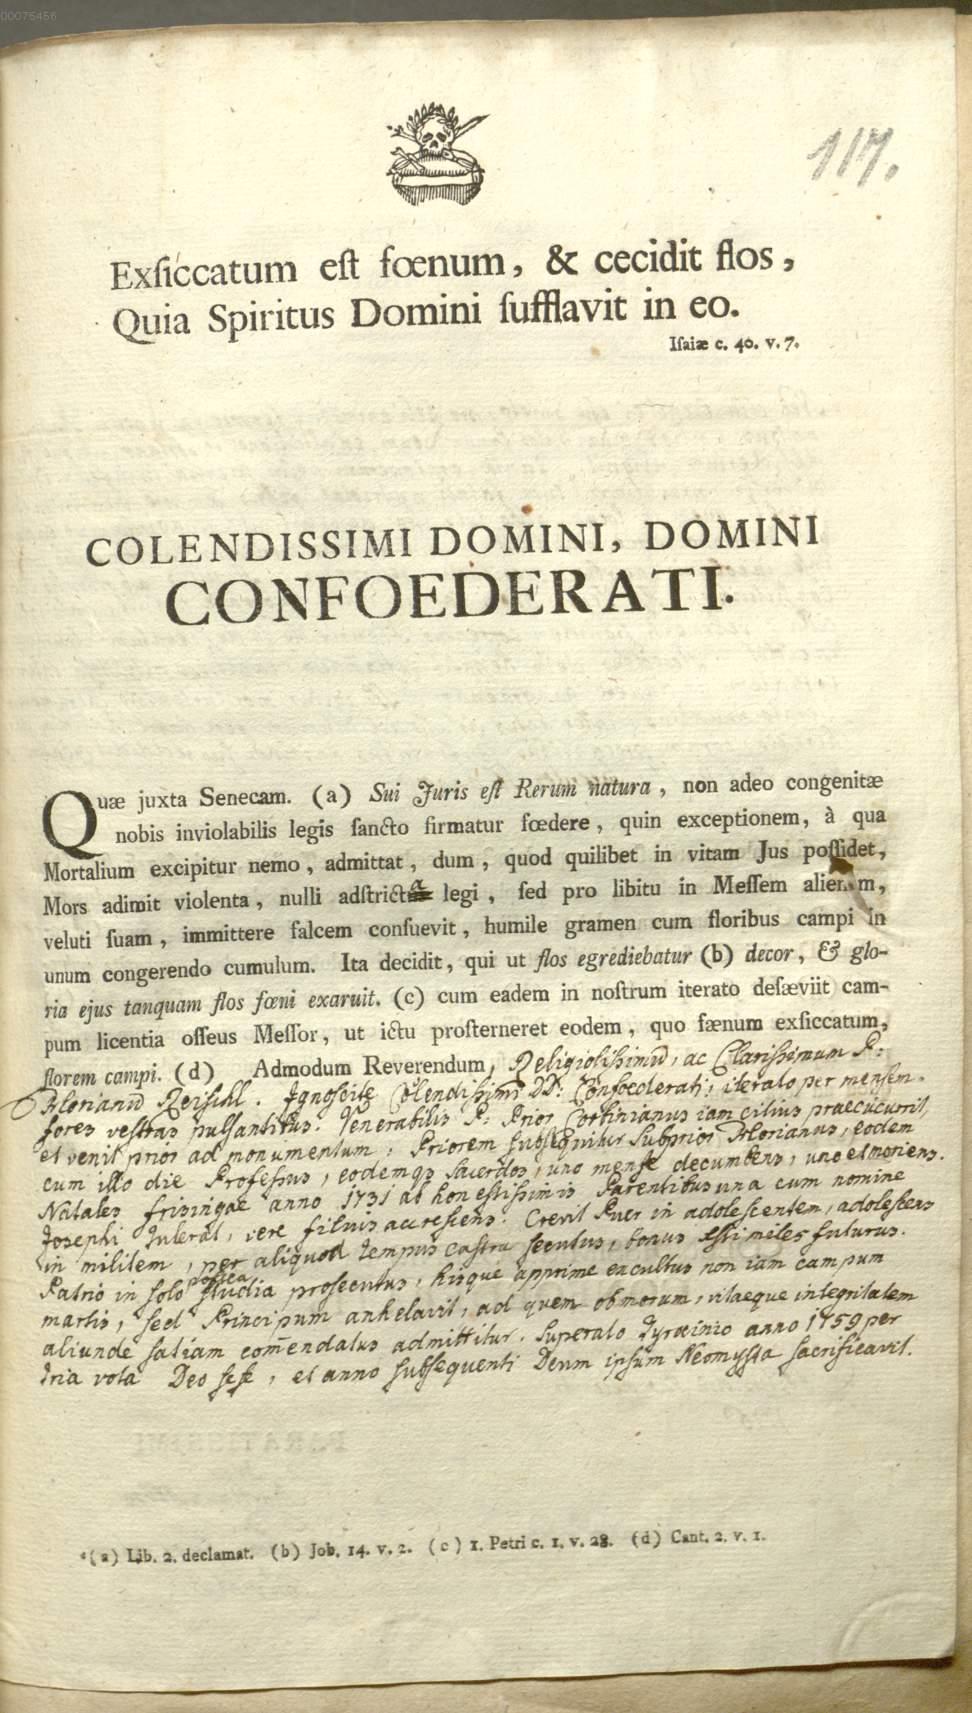 00075456
117.
Exsiccatum est fœnum, & cecidit flos,
Quia Spiritus Domini sufflavit in eo.
Isaiæ c. 40. v. 7.
COLENDISSIMI DOMINI, DOMINI
CONFOEDERATI.
Quæ juxta Senecam. (a) Sui Juris est Rerum natura, non adeo congenitæ
nobis inviolabilis legis sancto firmatur fœdere, quin exceptionem, à qua
Mortalium excipitur nemo, admittat, dum, quod quilibet in vitam Jus possidet,
Mors adimit violenta, nulli adstricta legi, sed pro libitu in Messem alienam,
veluti suam, immittere falcem consuevit, humile gramen cum floribus campi in
unum congerendo cumulum. Ita decidit, qui ut flos egrediebatur (b) decor, & glo-
ria ejus tanquam flos fœni exaruit. (c) cum eadem in nostrum iterato desæviit cam-
pum licentia osseus Messor, ut ictu prosterneret eodem, quo fænum exsiccatum,
florem campi. (d) Admodum Reverendum, Religiosissimū, ac Clarissimum P:
Florianū Reisihl. Ignoscite Colendissimi DD: Confoederati, iterato per mensem
fores vestras pulsantibus. Venerabilis P: Prior Corbinianus iam citius praecucurrit,
et venit prior ad monumentum, Priorem subsequitur Subprior Florianus, eodem
cum illo die Professus, eodemq3 sacerdos, uno mense decumbens, uno et moriens.
Natales frisingae anno 1731 ab honestissimis Parentibus una cum nomine
Josephi tulerat, vere filius accrescens. Crevit Puer in adolescentem, adolescens
in militem, per aliquod tempus castra secutus, bonus Xsti miles futurus.
Patrio in solo postea studia prosecutus, hisque apprime excultus non iam campum
martis, sed Principum anhelavit, ad quem ob morum, vitaeque integritatem
aliunde satiam com̄endatus admittitur. Superato Tyrocinio anno 1759 per
tria vota Deo sese, et anno subsequenti Deum ipsum Neomysta sacrificavit.
(a) Lib. 2. declamat. (b) Job. 14. v. 2. (c) 1. Petri c. 1. v. 28. (d) Cant. 2. v. 1.